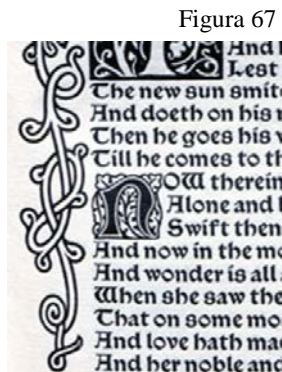 Figura 67
And
Lest
The new sun smit
And doeth on his
Then he goes his
Till he comes to th
NOW therein
Alone and
Swift then
And now in the mo
And wonder is all
When she saw the
That on some mo
And love hath mad
And her noble and